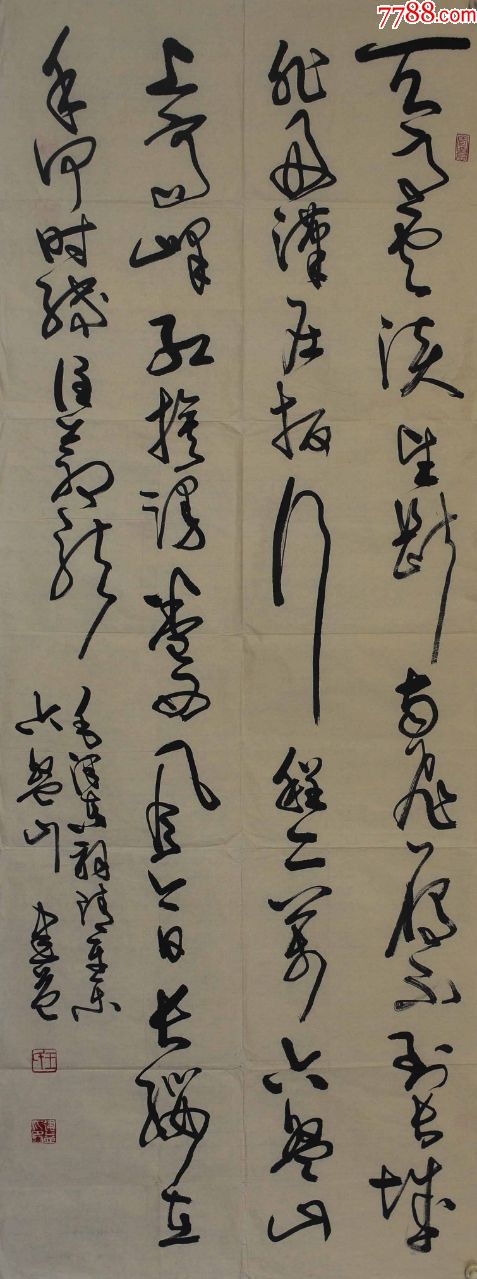 7788.com
天高雲淡望斷南飛雁不到长城
非好漢屈指行程二萬六盘山
上高峰红旗漫卷西风今日长缨在
手何时缚住苍龙
毛泽东词清平乐
六盘山